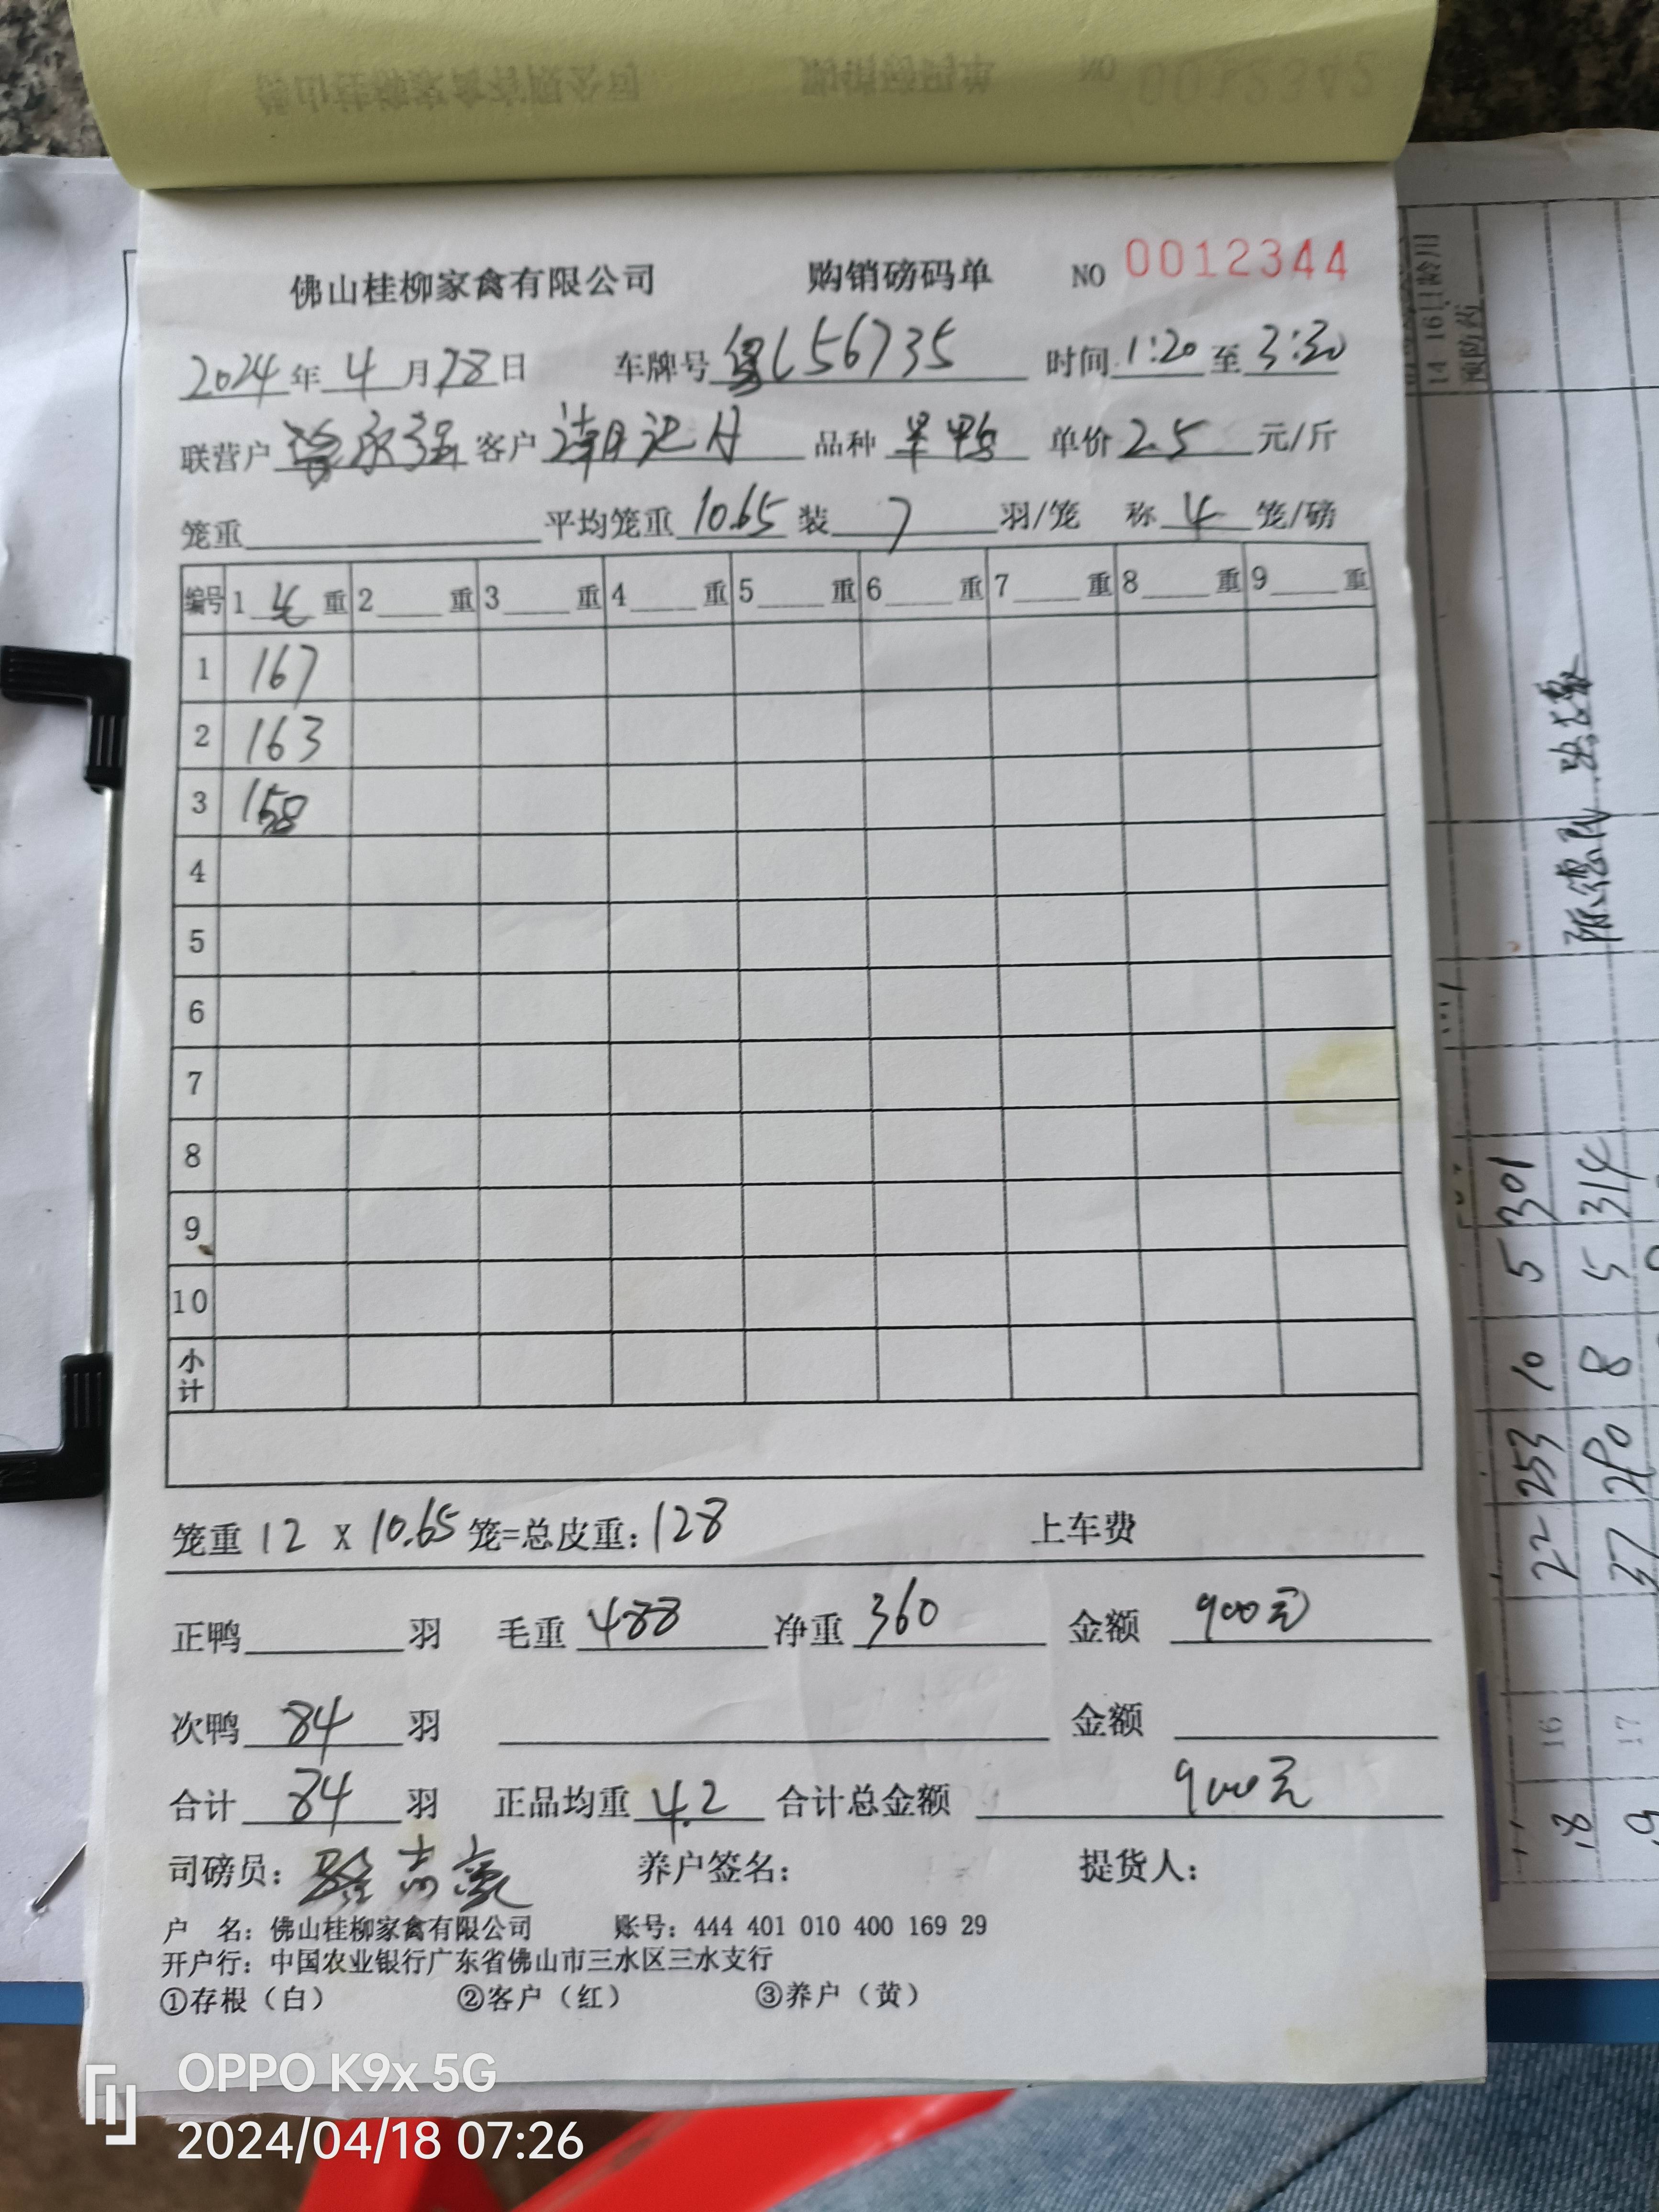 佛山桂柳家禽有限公司 购销磅码单 NO 0012344
2024年4月18日 车牌号粤L56735 时间1:20至3:30
联营户 永强 客户 记 品种 鸭 单价2.5元/斤
笼重 平均笼重10.65装7羽/笼 称4笼/磅
编号 1 毛重 2 重 3 重 4 重 5 重 6 重 7 重 8 重 9 重
1 167
2 163
3 158
4
5
6
7
8
9
10
小计
笼重12 X 10.65笼=总皮重:128 上车费
正鸭 羽 毛重488 净重360 金额 900元
次鸭 84 羽 金额
合计 84 羽 正品均重4.2 合计总金额 900元
司磅员: 志豪 养户签名: 提货人:
户 名: 佛山桂柳家禽有限公司 账号: 444 401 010 400 169 29
开户行: 中国农业银行广东省佛山市三水区三水支行
①存根(白) ②客户(红) ③养户(黄)
14-16日龄用
预防药
陈德
22 253 10 5 301
37 280 8 5 314
16
17
18
OPPO K9x 5G
2024/04/18 07:26